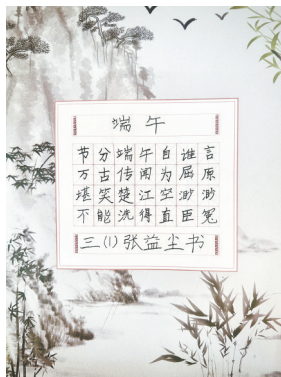 端午
节分端午自谁言
万古传闻为屈原
堪笑楚江空渺渺
不能洗得直臣冤
三(1)张益尘书